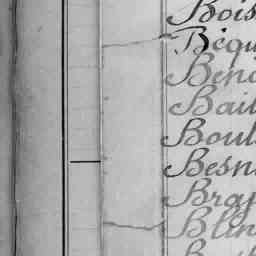 Bois
Béqu
Beno
Bail
Boul
Besn
Brap
Blin